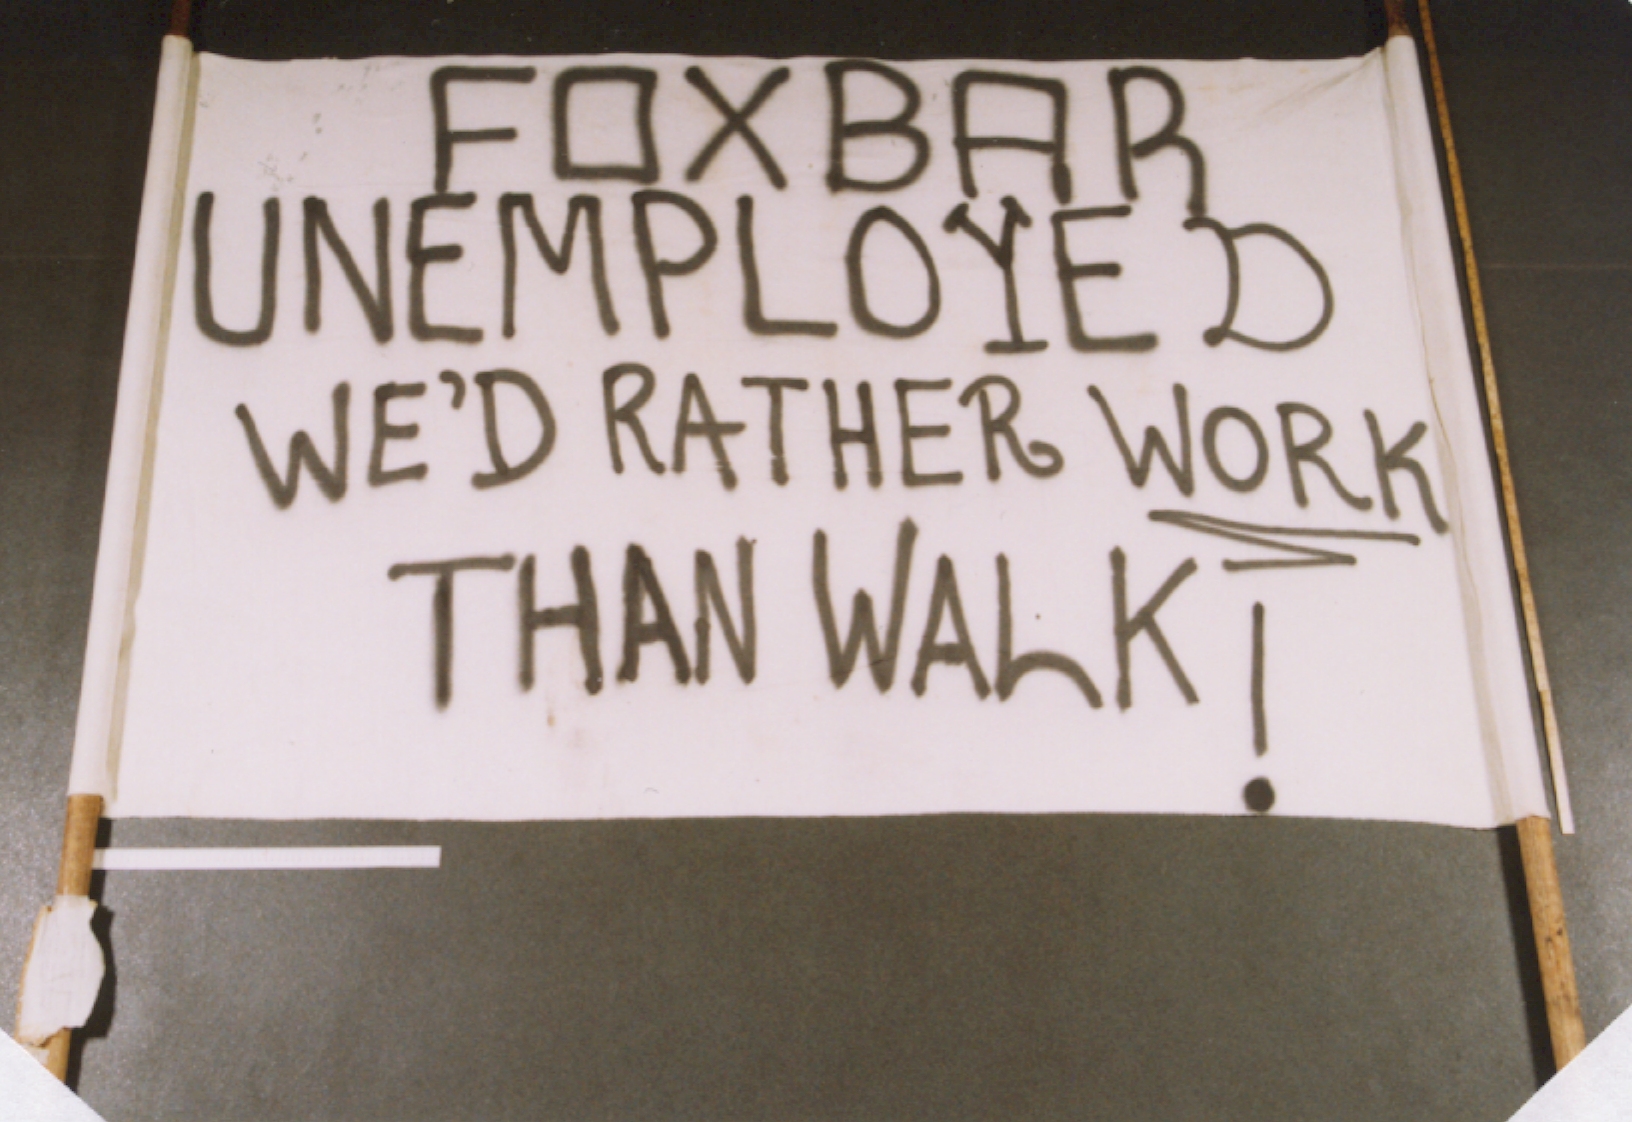 FOXBAR
UNEMPLOYED
WE'D RATHER WORK
THAN WALK!